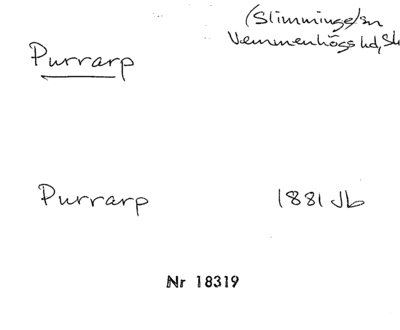 (Slimminge sn
Purrarp
Vemmenhögs hd, Sk
Purrarp 1881 Jb
Nr 18319